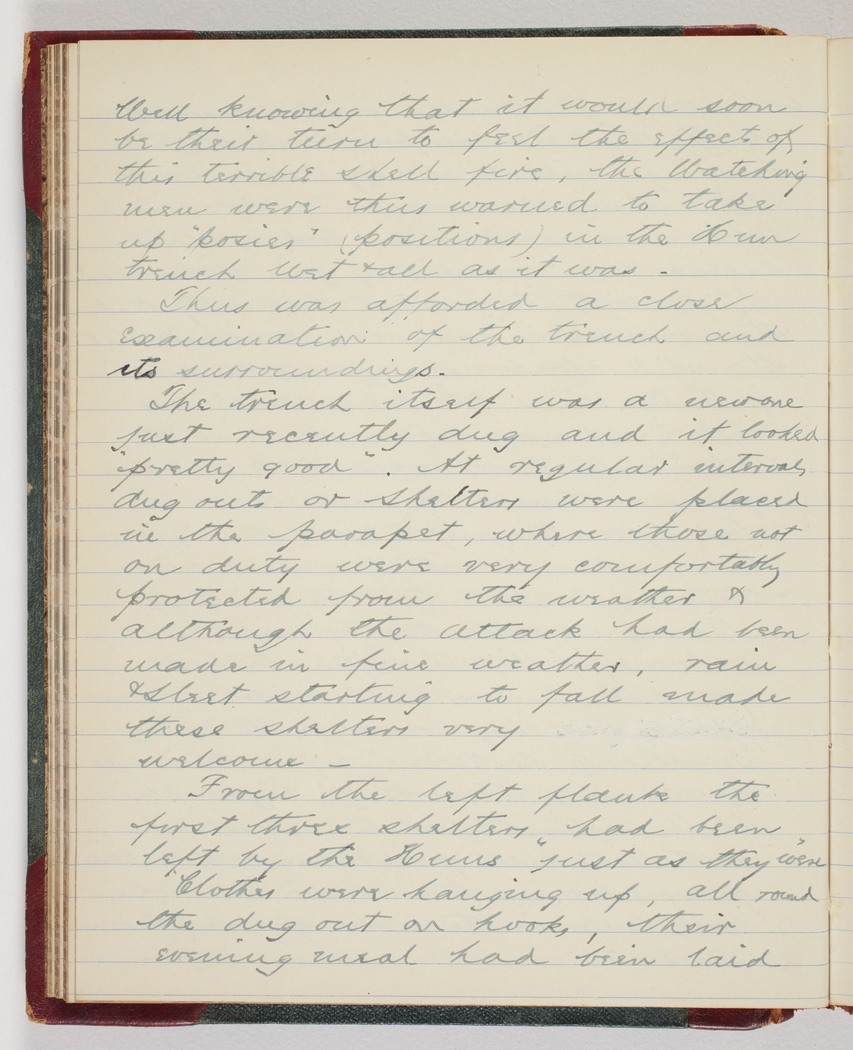 Well knowing that it would soon
be their turn to feel the effect of
this terrible shell fire, the Watching
men were thus warned to take
up "posies" (positions) in the Hun
trench Wet & all as it was.
Thus was afforded a close
examination of the trench and
its surroundings.
The trench itself was a new one
just recently dug and it looked
"pretty good". At regular intervals
dug outs or shelters were placed
in the parapet, where those not
on duty were very comfortably
protected from the weather &
although the attack had been
made in fine weather, rain
& Sleet starting to fall made
these shelters very
welcome -
From the left flank the
first three shelters had been
left by the Huns "just as they were"
Clothes were hanging up, all round
the dug out on hooks, their
evening meal had been laid